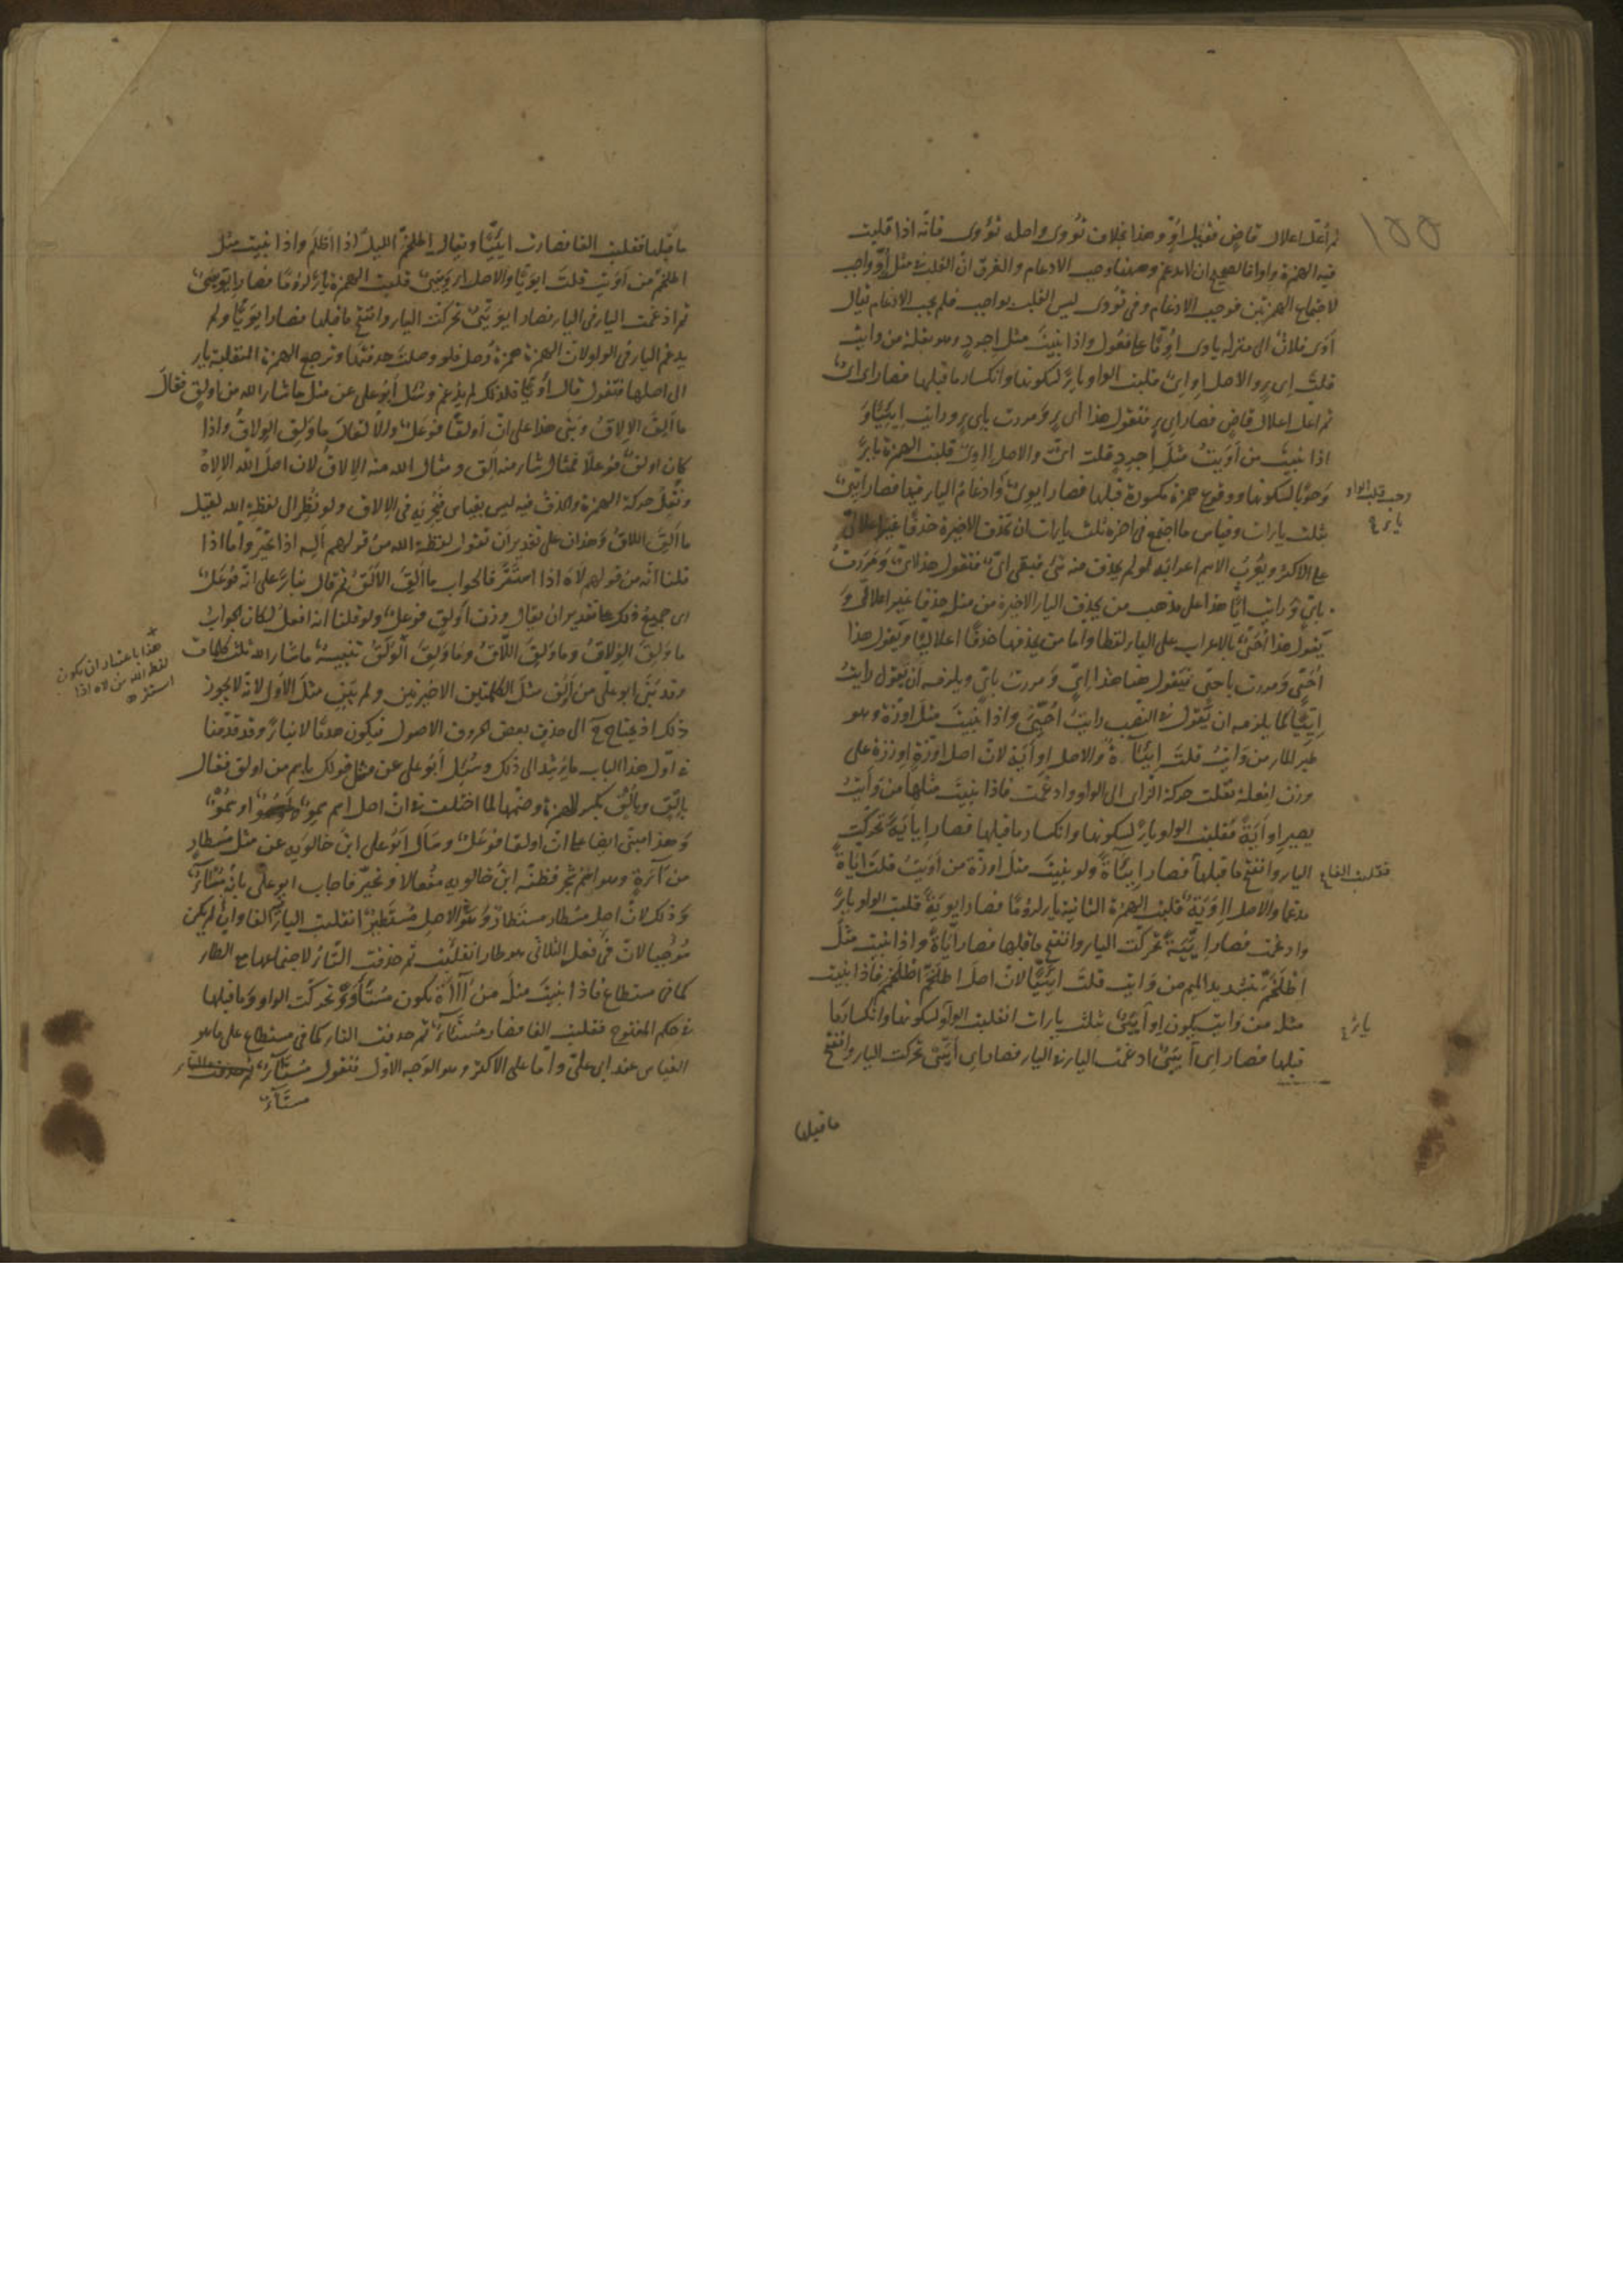 ١٥٥
ثم أعلّ اعلال قاضٍ فقيل اُوٍّ وهذا بخلاف تُووى واصله تُؤْوى فانه اذا قلبت
فيه الهمزة واوا فالصحيح ان لا يدغم وههنا وجب الادغام والفرق انّ القلب في مثل اوّ واجب
لاجتماع الهمزتين فوجب الادغام وفي تووى ليس القلب بواجب فلم يجب الادغام يقال
أوى فلانٌ الى منزله ياوى اُوِيًّا على فُعُول واذا بنيتَ مثل اِجرِدٍ وهو بقلة من وايت
قلتَ اِىءٍ والاصل اِوْاِىٌ فقلبت الواو ياءً لسكونها وانكسار ما قبلها فصار اِىْاِىٌ
ثم اعل اعلال قاضٍ فصار اىءٍ فتقول هذا اىءٍ ومررت باىءٍ ورايت اِيئيًا و
اذا بنيتَ من أَوَيتُ مثلَ اِجرِدٍ قلت اىٌّ والاصل اِاْوِىٌ قلبت الهمزة ياءً
وجوبًا لسكونها ووقوع همزة مكسورة قبلها فصار ايوِىٌ وادغام الياء فيها فصار ايّىٌ
وجب قلب الواو
ياء ع
بثلث ياءات وقياس ما اجتمع في اخره ثلث ياءات ان تحذف الاخيرة حذفًا غير اعلالىّ
على الاكثر ويُعربُ الاسم اعرابه لو لم يحذف منه شئ فيبقى اىٌّ فتقول هذا اىٌّ ومررتُ
باىٍّ ورايت ايًّا هذا على مذهب من يحذف الياء الاخيرة من مثل حذفا غير اعلالى و
يقول هذا اُحَىٌّ بالاعراب على الياء لفظا واما من يحذفها حذفًا اعلاليًا ويقول هذا
اُحَىٍّ ومررت باحىٍّ فيقول هنا هذا اىٍّ ومررت باىٍّ ويلزمه أن يقول رايتُ
اِيّيًا كما يلزمه ان يقول في النصب رايتُ اُحَيِّىَ واذا بنيتَ مثل اوزّة وهو
طير الماء من وَايتُ قلتَ اِيئَاةٌ والاصل اِوْأَيَة لان اصل اوزّة اِوْزَزَة على
وزن اِفعلة نقلت حركة الزاى الى الواو وادغمت فاذا بنيتَ مثلها من وَأيتُ
يصير اِوأيَةً فقلبت الواو ياءً لسكونها وانكسار ما قبلها فصار اِيأيَةً تحركت
الياء وانفتح ما قبلها فصار اِيئاةً ولو بنيتَ مثل اوزّة من أَوَيتُ قلتَ اِيّاةً
فقلبت الفا ع
مدغما والاصل اِاْوَيَةٌ قلبت الهمزة الثانية ياء لزومًا فصار ايوَيَةً قلبت الواو ياءً
وادغمت فصار ايَّيَةً تحركت الياء وانفتح ما قبلها فصار ايّاةً واذا بنيت مثلَ
اِطْلَخَمَّ بتشديد الميم من وَايت قلتَ اِيئَيّا لانّ اصل اطلخمّ اطلَخْمَمَ فاذا بنيت
مثله من وايت يكون اِوأَيْيَىَ بثلث ياءات انقلبت الواو لسكونها وانكسار ما
ياء ع
قبلها فصار اِىأَيْيَىَ ادغمت الياء في الياء فصار اِىأَيَّىَ تحركت الياء وانفتح
ما قبلها
ما قبلها فقلبت الفا فصارت ايئَيّا ويقال اِطلخمّ الليلُ اذا اظلم واذا بنيت مثل
اطلخمّ من أوَيت قلتَ ايوَيّا والاصل اِءوَيْيَىَ قلبت الهمزة ياءً لزومًا فصار اِيوَيْيَىَ
ثم ادغمت الياء في الياء فصار ايوَيَّىَ تحركت الياء وانفتح ما قبلها فصار ايوَيّا ولم
يدغم الياء في الواو لان الهمزة همزة وصل فلو وصلتَ حذفتها وترجع الهمزة المنقلبة ياء
الى اصلها فتقول قال اْوَيّا فلذلك لم يدغم وسُئل أبو على عن مثل ما شاء الله من اولقٍ فقال
ما أَلِقَ الاِلاقُ وبنى هذا على انّ أولقًا فَوعَلٌ والّا لقال ما وَلِقَ الوِلاقُ واذا
كان اولقٌ فوعلًا فمثال شاء منه أَلِق ومثال الله منه الاِلاقُ لان اصل الله الاِلاهُ
ونقل حركة الهمزة والحذف فيه ليس بقياس فيُجرى في الالاق ولو نُظِر الى لفظة الله لقيل
ما أَلِقَ اللاقُ وهذان على تقدير ان تقول لفظة الله من قولهم أَلِهَ اذا تحيّر واما اذا
قلنا انه من قولهم لاهَ اذا استتر فالجواب ما أَلِقَ الأَلَقُ ثم قال بناءً على انه فَوعَلٌ
اى جميع ذلك على تقدير ان يقال وزن اولق فوعلٌ ولو قلنا انه افعل لكان الجواب
ما وَلِقَ الوِلاقُ وما وَلِقَ اللاقُ وما وَلِقَ الوَلَقُ تنبيهٌ ما شاء الله ثلث كلمات
هذا باعتبار ان يكون
لفظ الله من لاه اذا
استتر ه
وقد بنى ابو على من أَلِق مثل الكلمتين الاخيرتين ولم يبن مثل الاول لانه لا يجوز
ذلك اذ يحتاج ح الى حذف بعض الحروف الاصول فيكون هدمًا لا بناءً وقد قدّمنا
في اوّل هذا الباب ما يرشد الى ذلك وسُئل أبو على عن مثل قولك باسم من اولق فقال
بِاِلْقٍ وبِاُلْقٍ بكسر الهمزة وضمّها لما اختلف في انّ اصل اسم سِموٌ او سُموٌ
وهذا مبنى ايضا على انّ اولقا فوعلٌ وسأل ابو على ابنَ خالويه عن مثل مُسطارٍ
من آءَةٍ وهو اسم شجر فظنّه ابن خالويه مُفعالا وتحيّر فاجاب ابو على بانّه مُسْئاءٌ
وذلك لانّ اصل مسطار مستطارٌ وهو في الاصل مُستَطيَرٌ انقلبت الياء الفا وان لم يكن
موجبا لانّ في فعل الثلاثى وهو طار انقلبت ثم حذفت التاء لاجتماعها مع الطاء
كما في مستطاع فاذا بنيتَ مثلَه من آءَة يكون مُستَأْوَءٌ تحركت الواو وما قبلها
في حكم المفتوح فقلبت الفا فصار مُستَئاءٌ ثم حذفت التاء كما في مستطاع على ما هو
القياس عند ابى علىّ واما على الاكثر وهو الوجه الاول فتقول مُستَئاءٌ
مستاء